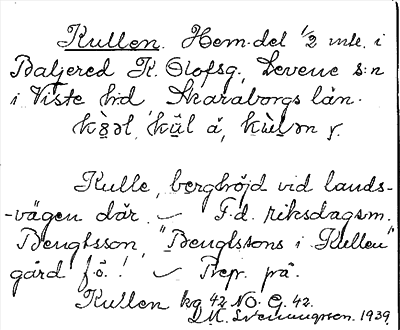 Kullen. Hem.del 1/2 mtl. i
Baljered K. Olofsg., Levene s:n
i Viste h:d Skaraborgs län.
Kulle, berghöjd vid lands-
-vägen där. — F.d. riksdagsm.
Bengtsson, "Bengtssons i Kullen"
gård f.ö.! — Prep. på.
Kullen kg 42 NO. G. 42.
D.M. Svenungson. 1939